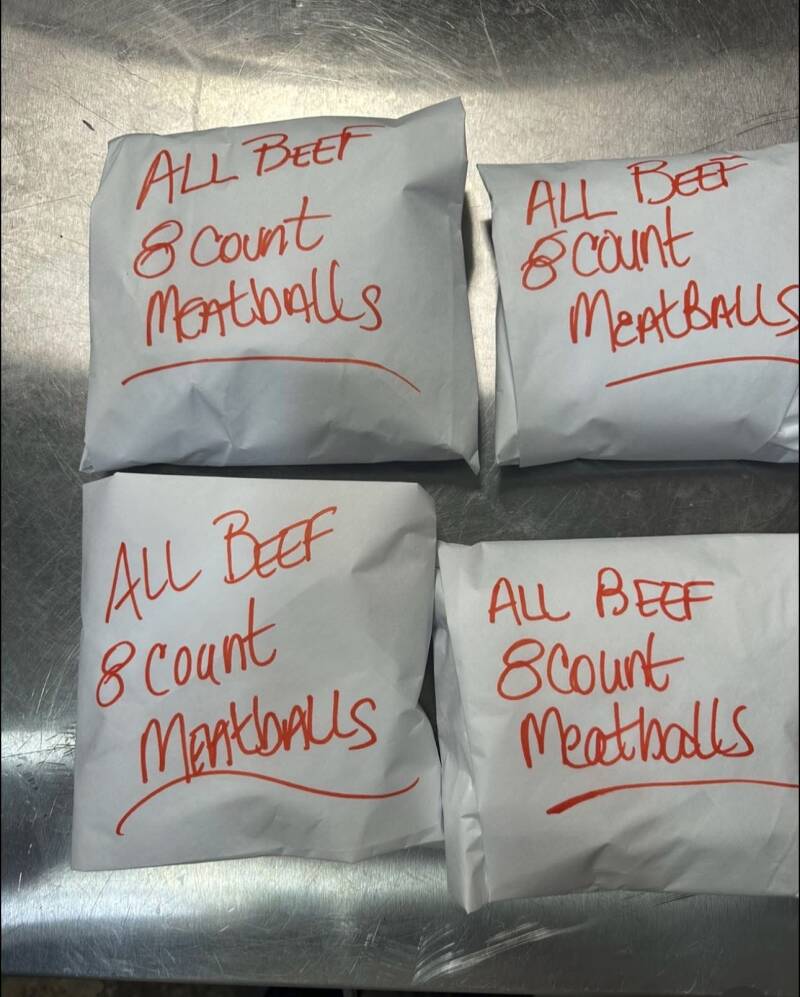 ALL BEEF
8 count
MEAtbALLs
ALL BEEF
8 count
MEAtBALLS
ALL BEEF
8 count
MEAtbALLS
ALL BEEF
8 count
Meatballs